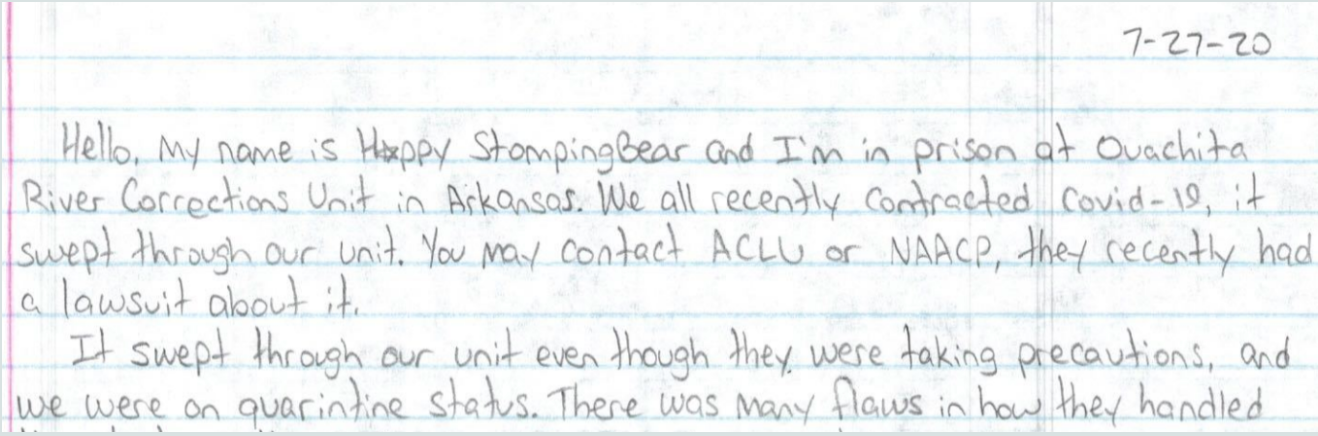 7-27-20
Hello, My name is Happy StompingBear and I'm in prison at Ouachita
River Corrections Unit in Arkansas. We all recently contracted Covid-19, it
swept through our unit. You may contact ACLU or NAACP, they recently had
a lawsuit about it.
It swept through our unit even though they were taking precautions, and
we were on quarintine status. There was many flaws in how they handled